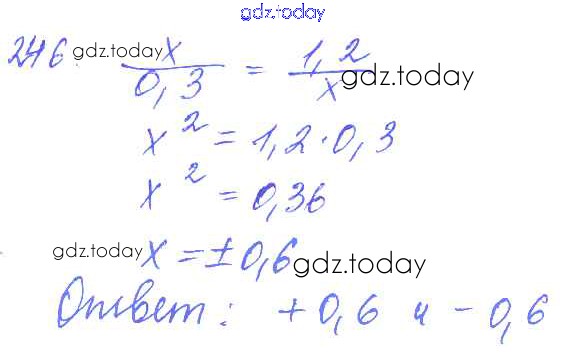 gdz.today
246. gdz.today x/0,3 = 1,2/x gdz.today
x² = 1,2 · 0,3
x² = 0,36
gdz.today x = ±0,6 gdz.today
Ответ: +0,6 и -0,6